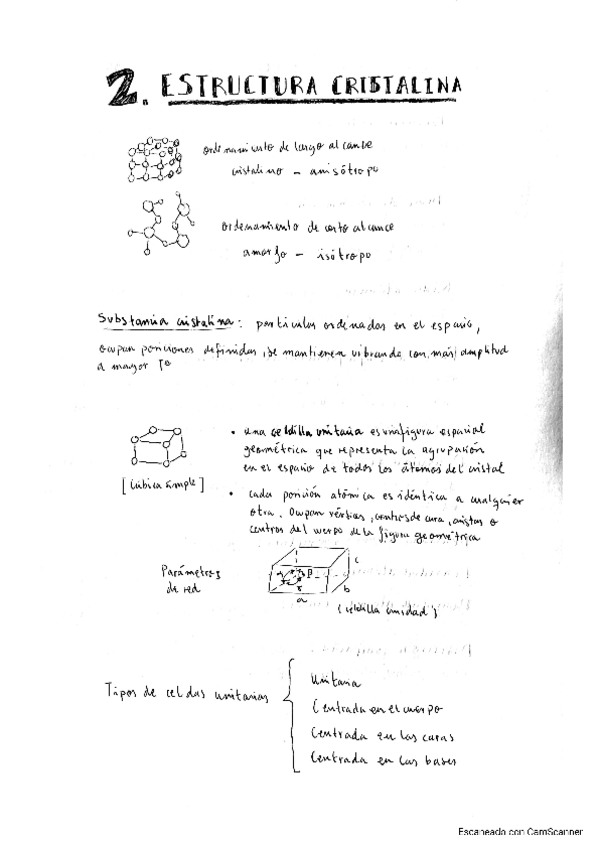 2. ESTRUCTURA CRISTALINA
ordenamiento de largo alcance
cristalino - anisótropo
ordenamiento de corto alcance
amorfo - isótropo
Substancia cristalina: partículas ordenadas en el espacio,
ocupan posiciones definidas, se mantienen vibrando con más amplitud
a mayor Tª
[Cúbica simple]
• una celdilla unitaria es una figura espacial
geométrica que representa la agrupación
en el espacio de todos los átomos del cristal
• cada posición atómica es idéntica a cualquier
otra. Ocupan vértices, centros de cara, aristas o
centros del cuerpo de la figura geométrica
Parámetros
de red
α β γ
a b c
(celdilla unidad)
Tipos de celdas unitarias
Unitaria
Centrada en el cuerpo
Centrada en las caras
Centrada en las bases
Escaneado con CamScanner